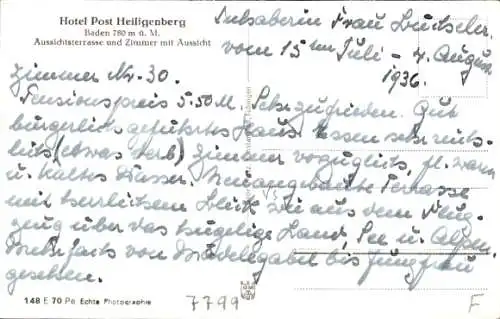 Hotel Post Heiligenberg
Baden 780 m ü. M.
Aussichtsterrasse und Zimmer mit Aussicht
Inhaberin Frau
vom 15ten Juli - 4. August
1936.
Zimmer Nr. 30.
Pensionspreis 5.50 M. Sehr zufrieden. Gut
bürgerlich geführtes Haus. Essen sehr reich-
lich (etwas derb) Zimmer vorzüglich, fl. warm
u. kaltes Wasser. Neuangebaute Terrasse
mit herrlichem Blick wie aus dem Flug-
zeug über das hügelige Land, See u. Alpen,
von Mädelegabel bis Jungfrau
gesehen.
148 E 70 Pe Echte Photographie
7799
F